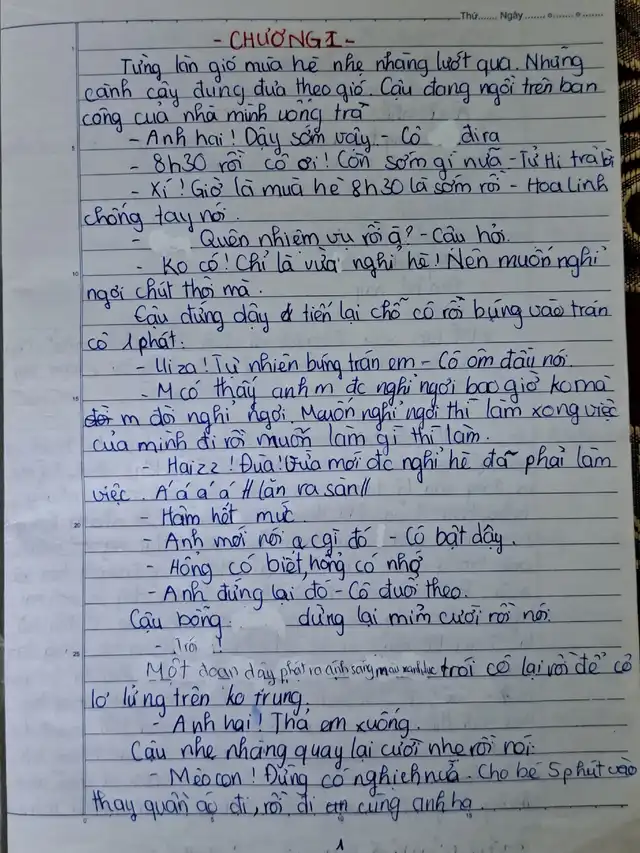 Thứ...... Ngày ........................
- CHƯƠNG I -
Từng làn gió mùa hè nhẹ nhàng lướt qua. Những
cành cây đung đưa theo gió. Cậu đang ngồi trên ban
công của nhà mình uống trà
- Anh hai! Dậy sớm vậy - Cô đi ra
- 8h30 rồi cô ơi! Còn sớm gì nữa - Tử Hi trả lời
- Xí! Giờ là mùa hè 8h30 là sớm rồi - Hoa Linh
chống tay nói.
- Quên nhiệm vụ rồi à? - Cậu hỏi.
- Ko có! Chỉ là vừa nghỉ hè! Nên muốn nghỉ
ngơi chút thôi mà.
Cậu đứng dậy tiến lại chỗ cô rồi búng vào trán
cô 1 phát.
- Ui za! Tự nhiên búng trán em - Cô ôm đầu nói.
- M có thấy anh m đc nghỉ ngơi bao giờ ko mà
m đòi nghỉ ngơi. Muốn nghỉ ngơi thì làm xong việc
của mình đi rồi muốn làm gì thì làm.
- Haizz! Đùa! Vừa mới đc nghỉ hè đã phải làm
việc. Á á á á // lăn ra sàn //
- Hâm hết mức.
- Anh mới nói cgì đó - Cô bật dậy.
- Hổng có biết, hổng có nhớ
- Anh đứng lại đó - Cô đuổi theo.
Cậu bỗng dừng lại mỉm cười rồi nói:
- Trói !
Một đoạn dây phát ra ánh sáng màu xanh lục trói cô lại rồi để cô
lơ lửng trên ko trung.
- Anh hai! Thả em xuống.
Cậu nhẹ nhàng quay lại cười nhẹ rồi nói:
- Mèo con! Đừng có nghịch nữa. Cho bé 5 phút vào
thay quần áo đi, rồi đi cùng anh hạ
1